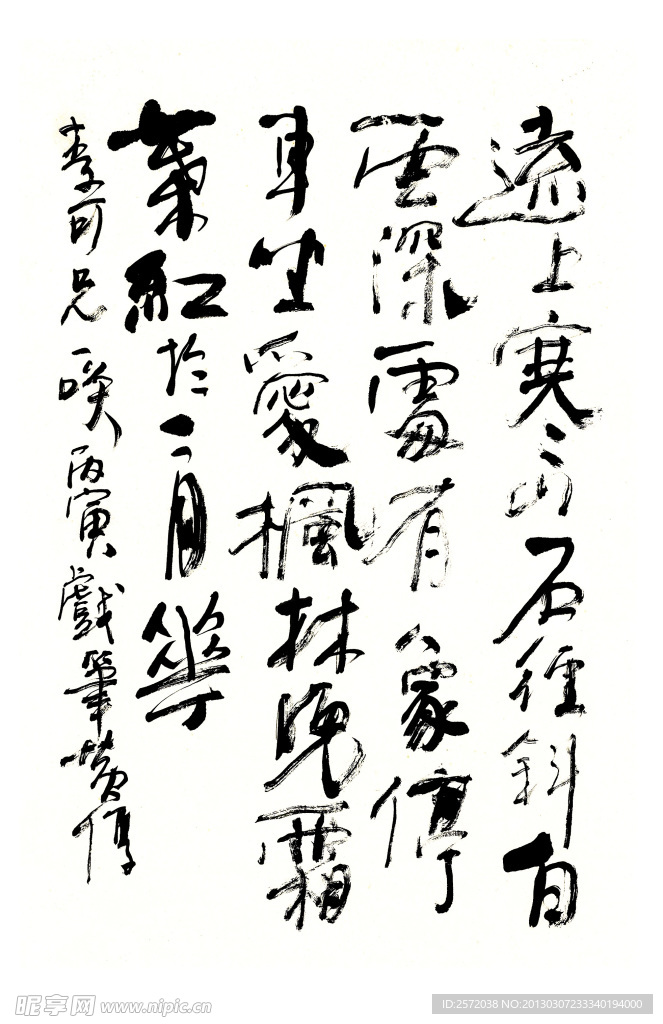 遠上寒山石徑斜白
雲深處有人家停
車坐愛楓林晚霜
葉紅於二月華
李可兄一咲丙寅戲筆黄
昵享网 www.nipic.cn
ID:2572038 NO:20130307233340194000